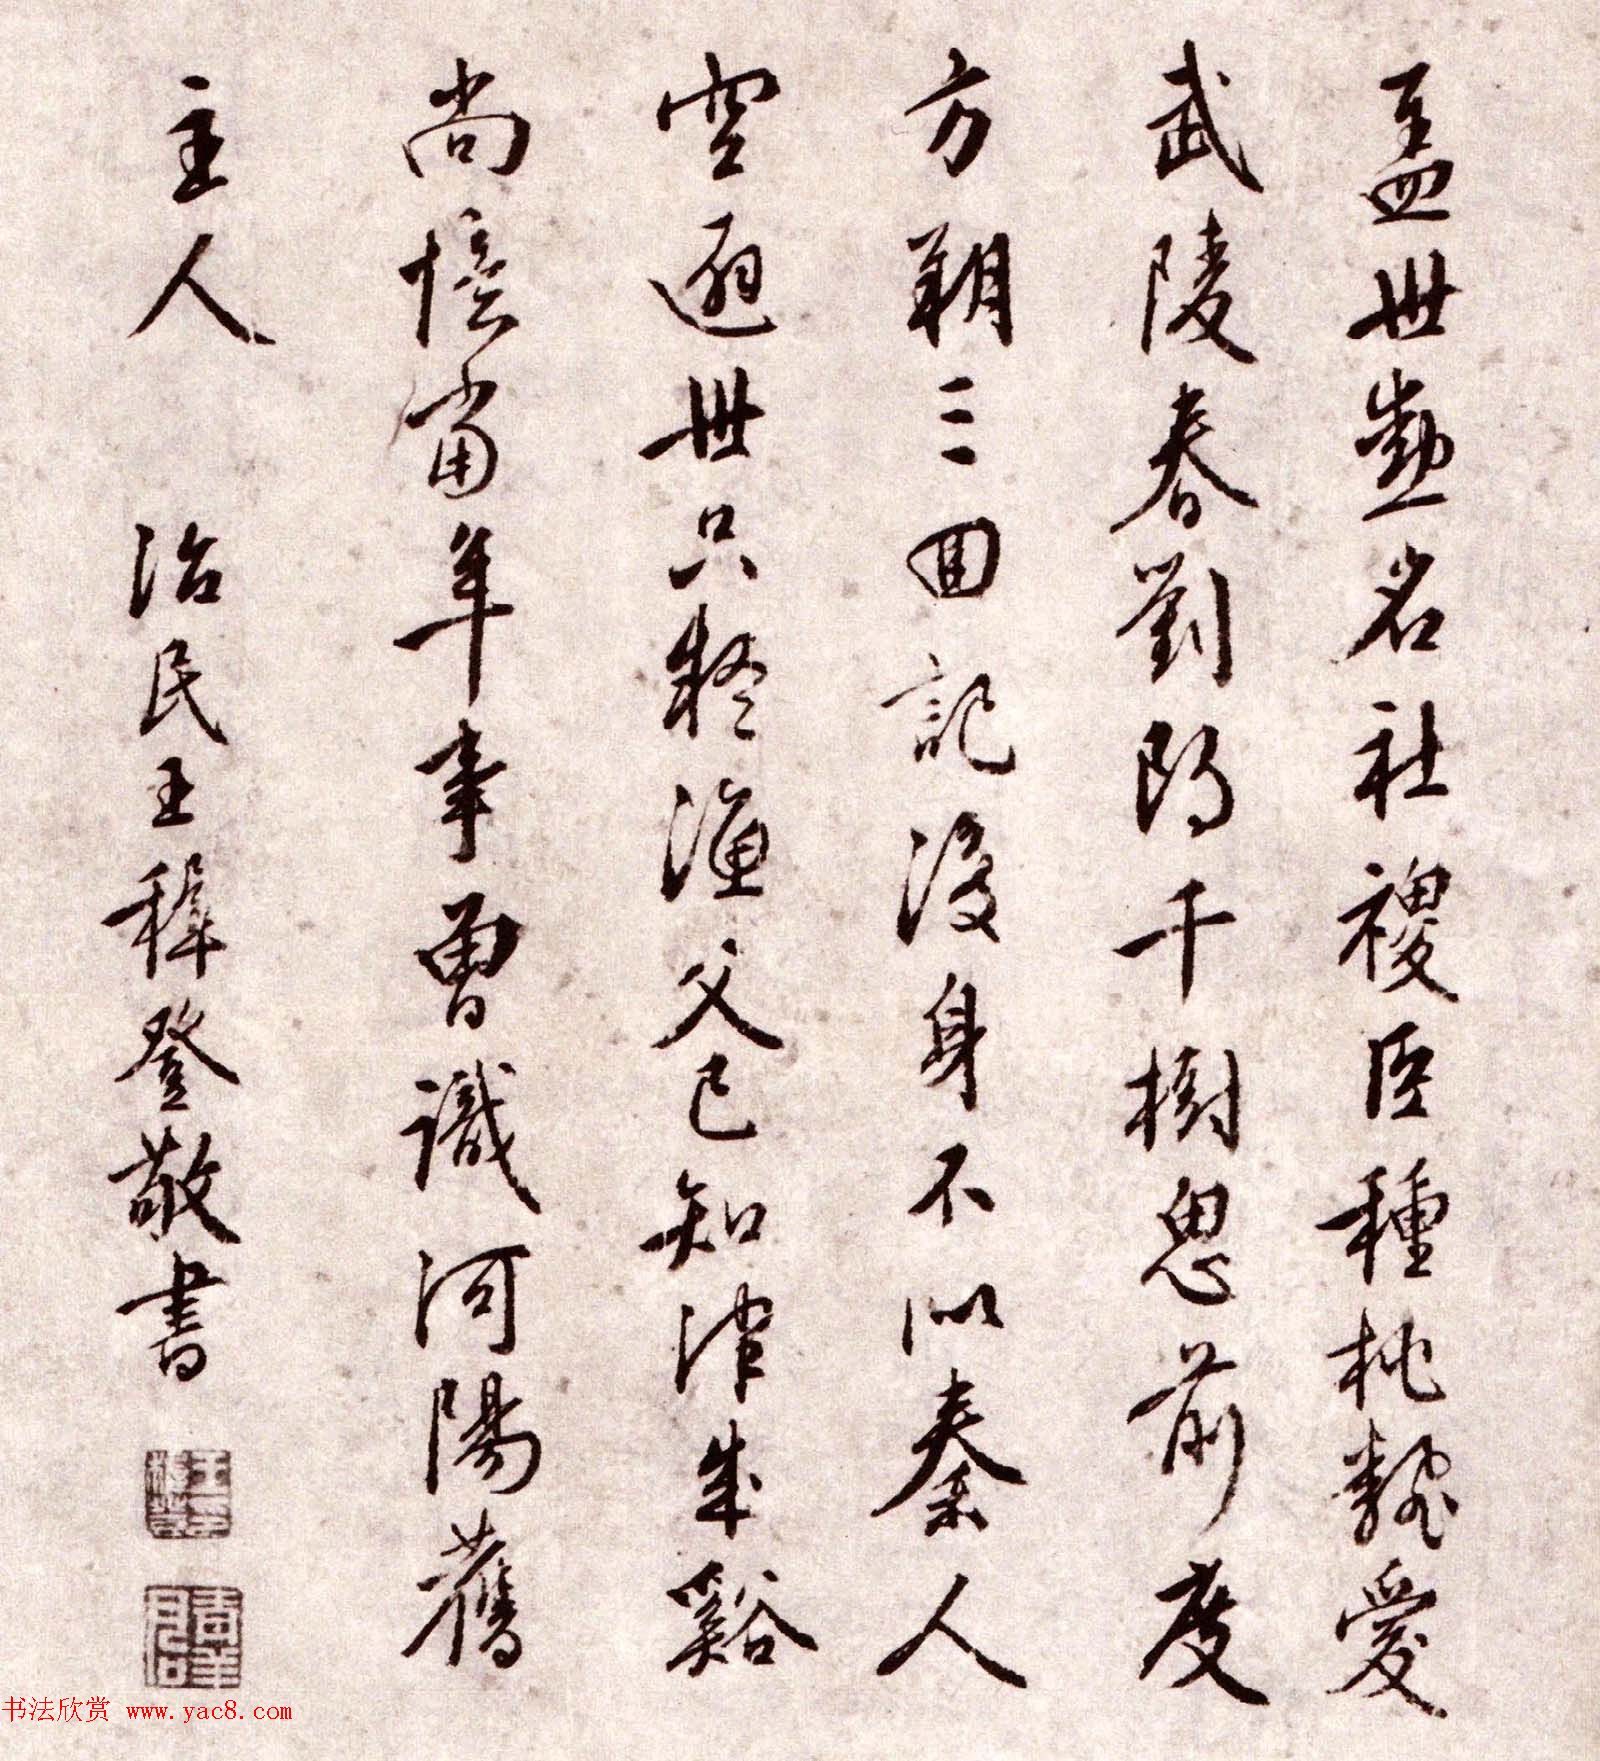 蓋世勳名社稷臣種桃孰愛
武陵春劉郎千樹思前度
方朔三回記後身不似秦人
空避世只疑漁父已知津成谿
尚憶當年事曾識河陽舊
主人 治民王穉登敬書
书法欣赏 www.yac8.com